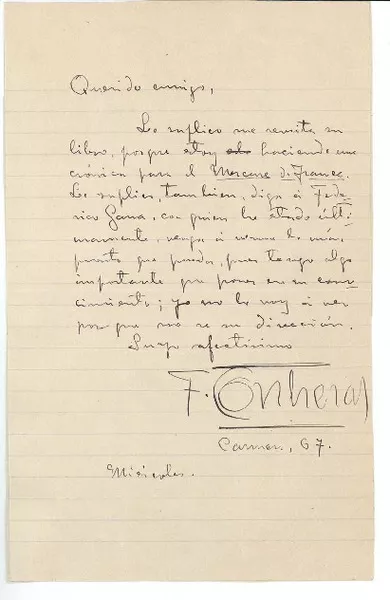 Querido amigo,
Le suplico me remita su
libro, porque estoy haciendo una
crónica para el Mercure de France.
Le suplico, tambien, diga á Fede-
rico Gana, con quien he estado últi-
mamente, venga á verme lo más
pronto que pueda, pues tengo algo
importante que poner en su cono-
cimiento; yo no lo voy á ver
porque no se su direccion.
Suyo afectisimo
F. Contreras
Carmen, 67.
Miércoles.